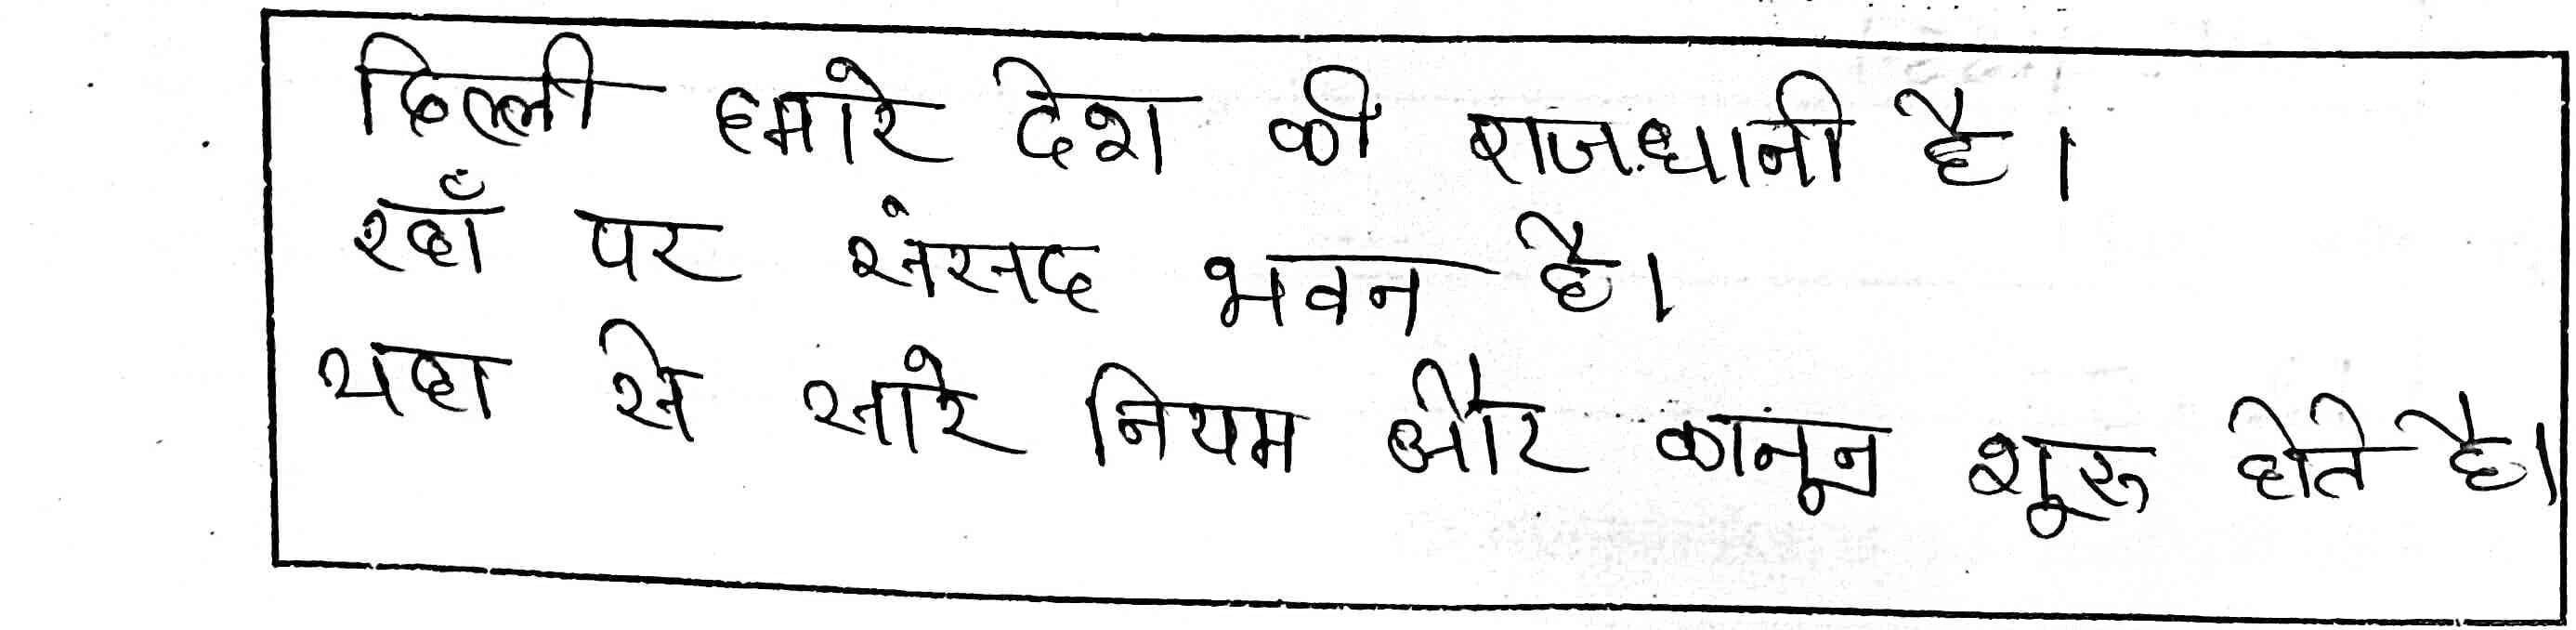 दिल्ली हमारे देश की राजधानी है।
यहाँ पर संसद भवन है।
यहा से सारे नियम और कानून शूरू होते है।